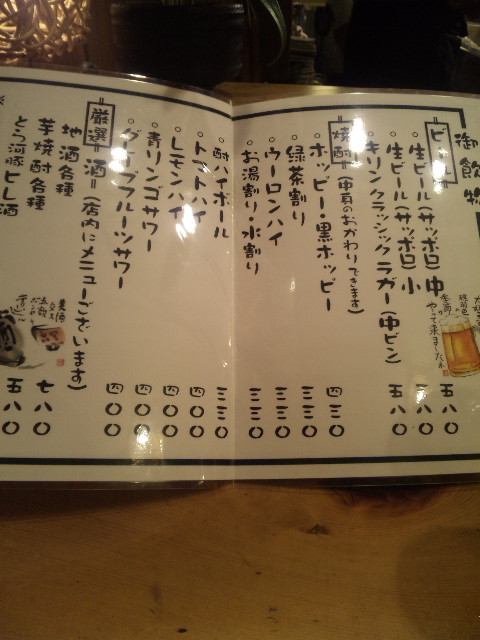 御飲物
ビール
。生ビール(サッポロ)中 五八〇
。生ビール(サッポロ)小 三八〇
。キリンクラシックラガー(中ビン) 五八〇
焼酎=(中身のおかわりできます)
。ホッピー・黒ホッピー 四三〇
。緑茶割り 三三〇
。ウーロンハイ 三三〇
。お湯割り・水割り 三三〇
。酎ハイボール 三三〇
。トマトハイ 四〇〇
。レモンハイ 四〇〇
。青リンゴサワー 四〇〇
。グレープフルーツサワー 四〇〇
厳選酒=(店内にメニューございます)
地酒各種
芋焼酎各種 七八〇
とら河豚ヒレ酒 五八〇